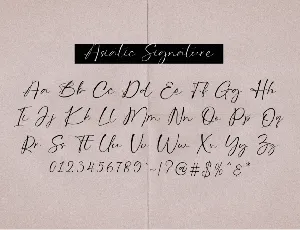 Asialic Signature
Aa Bb Cc Dd Ee Ff Gg Hh
Ii Jj Kk Ll Mm Nn Oo Pp Qq
Rr Ss Tt Uu Vv Ww Xx Yy Zz
0123456789~!?@#$%^&*